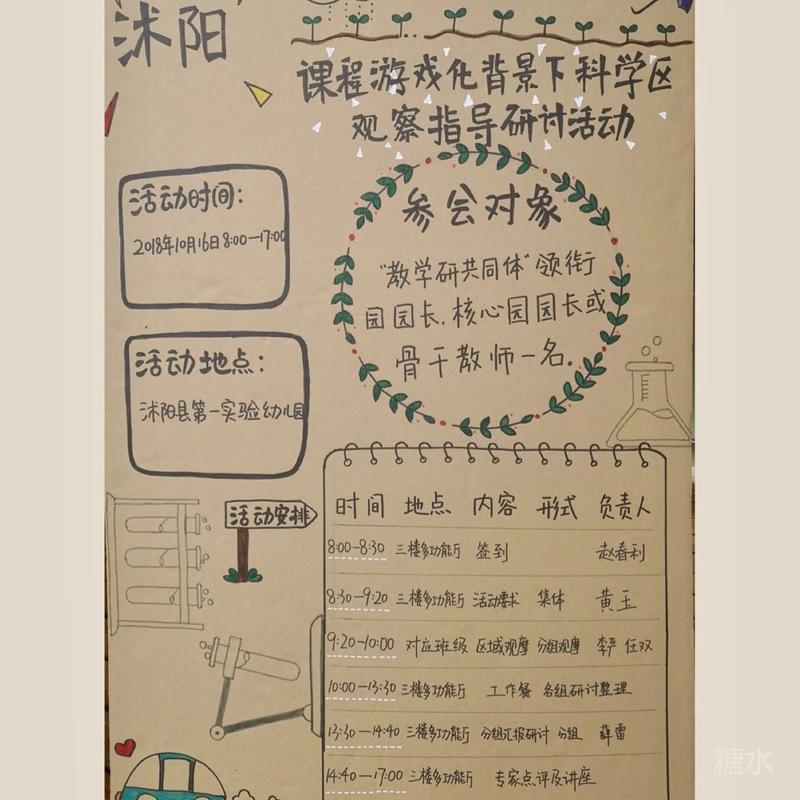 沭阳
课程游戏化背景下科学区
观察指导研讨活动
活动时间：
2018年10月16日8:00—17:00
活动地点：
沭阳县第一实验幼儿园
参会对象
“教学研共同体”领衔
园园长,核心园园长或
骨干教师一名.
活动安排
时间 地点 内容 形式 负责人
8:00-8:30 三楼多功能厅 签到 赵春利
8:30-9:20 三楼多功能厅 活动要求 集体 黄玉
9:20-10:00 对应班级 区域观摩 分组观摩 李严 任双
10:00-13:30 三楼多功能厅 工作餐 各组研讨整理
13:30—14:40 三楼多功能厅 分组汇报研讨 分组 薛雷
14:40—17:00 三楼多功能厅 专家点评及讲座
糖水